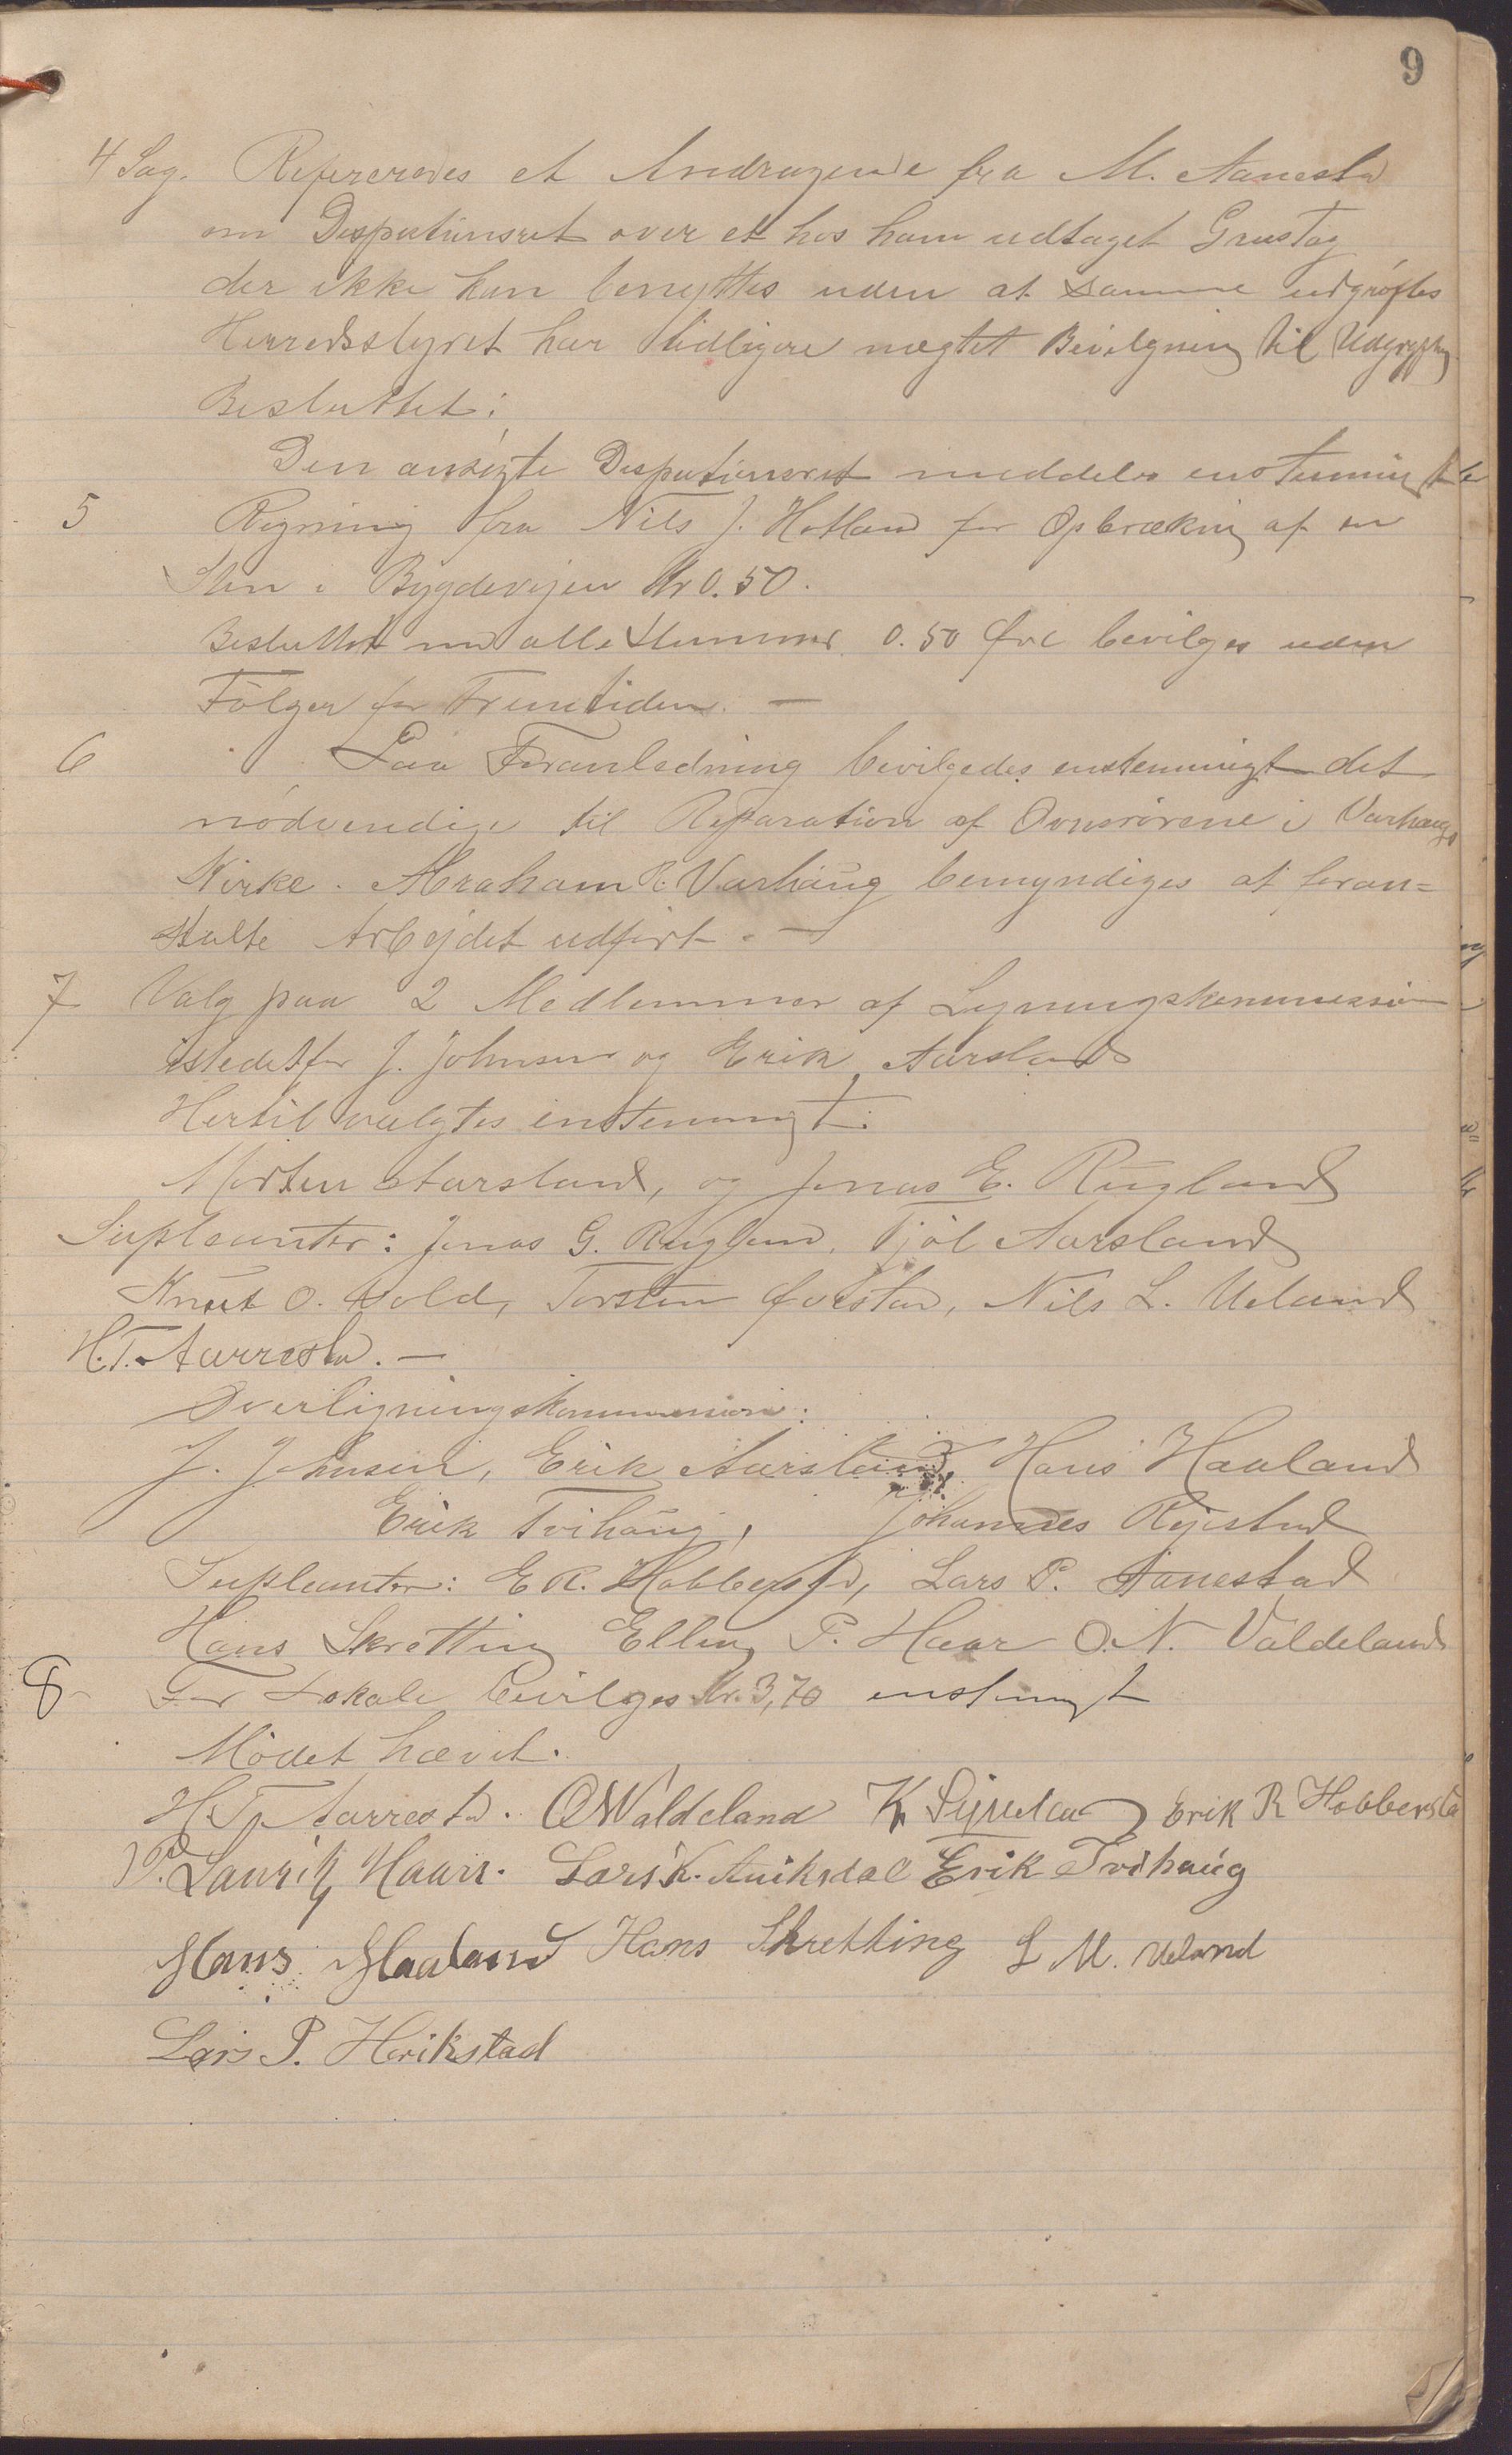 9
4 Sag. Refereredes et Andragende fra M. Aanestad
om Dispositionsret over et hos ham udtaget Grustag
der ikke kan benyttes uden at samme udgrøftes
Herredsstyret har tidligere nægtet Bevilgning til
Besluttet:
Den ansøgte Dispositionsret meddeles enstemmigt
5 Regning fra Nils J. Hotland for Opbrækning af en
Sten i Bygdevejen Kr 0.50.
Besluttet med alle Stemmer 0.50 Øre bevilges uden
Følger for Fremtiden. —
6 Paa Foranledning bevilgedes enstemmigt det
nødvendige til Reparation af Ovnsrørene i Varhaugs
Kirke. Abraham R. Varhaug bemyndiges at foran=
stalte Arbejdet udført. —
7 Valg paa 2 Medlemmer af Ligningskommission
istedetfor J. Johnsen og Erik Aarsland
Hertil valgtes enstemmigt:
Morten Aarsland, og Jonas E. Rugland
Supleanter: Jonas G. Rugland, Kjøl Aarsland
Knut O. Vold, Torsten Øvestad, Nils L. Ueland
H.T. Aarrestad. —
Overligningskommission:
J. Johnsen, Erik Aarsland, Hans Haaland
Erik Tvihaug, Johannes Rejestad
Supleanter: E R. Hobberstad, Lars P. Aanestad
Hans Skretting Elling P. Haar O.N. Valdeland
8 For Lokale bevilges Kr. 3,70 enstemmigt
Mødet hævet.
H.T. Aarrestad. O N Valdeland Erik R Hobberstad
P. Lauritz Haarr. Lars K. Auiksdal Erik Tvihaug
Hans Haaland Hans Skretting L M. Ueland
Lars P. Herikstad